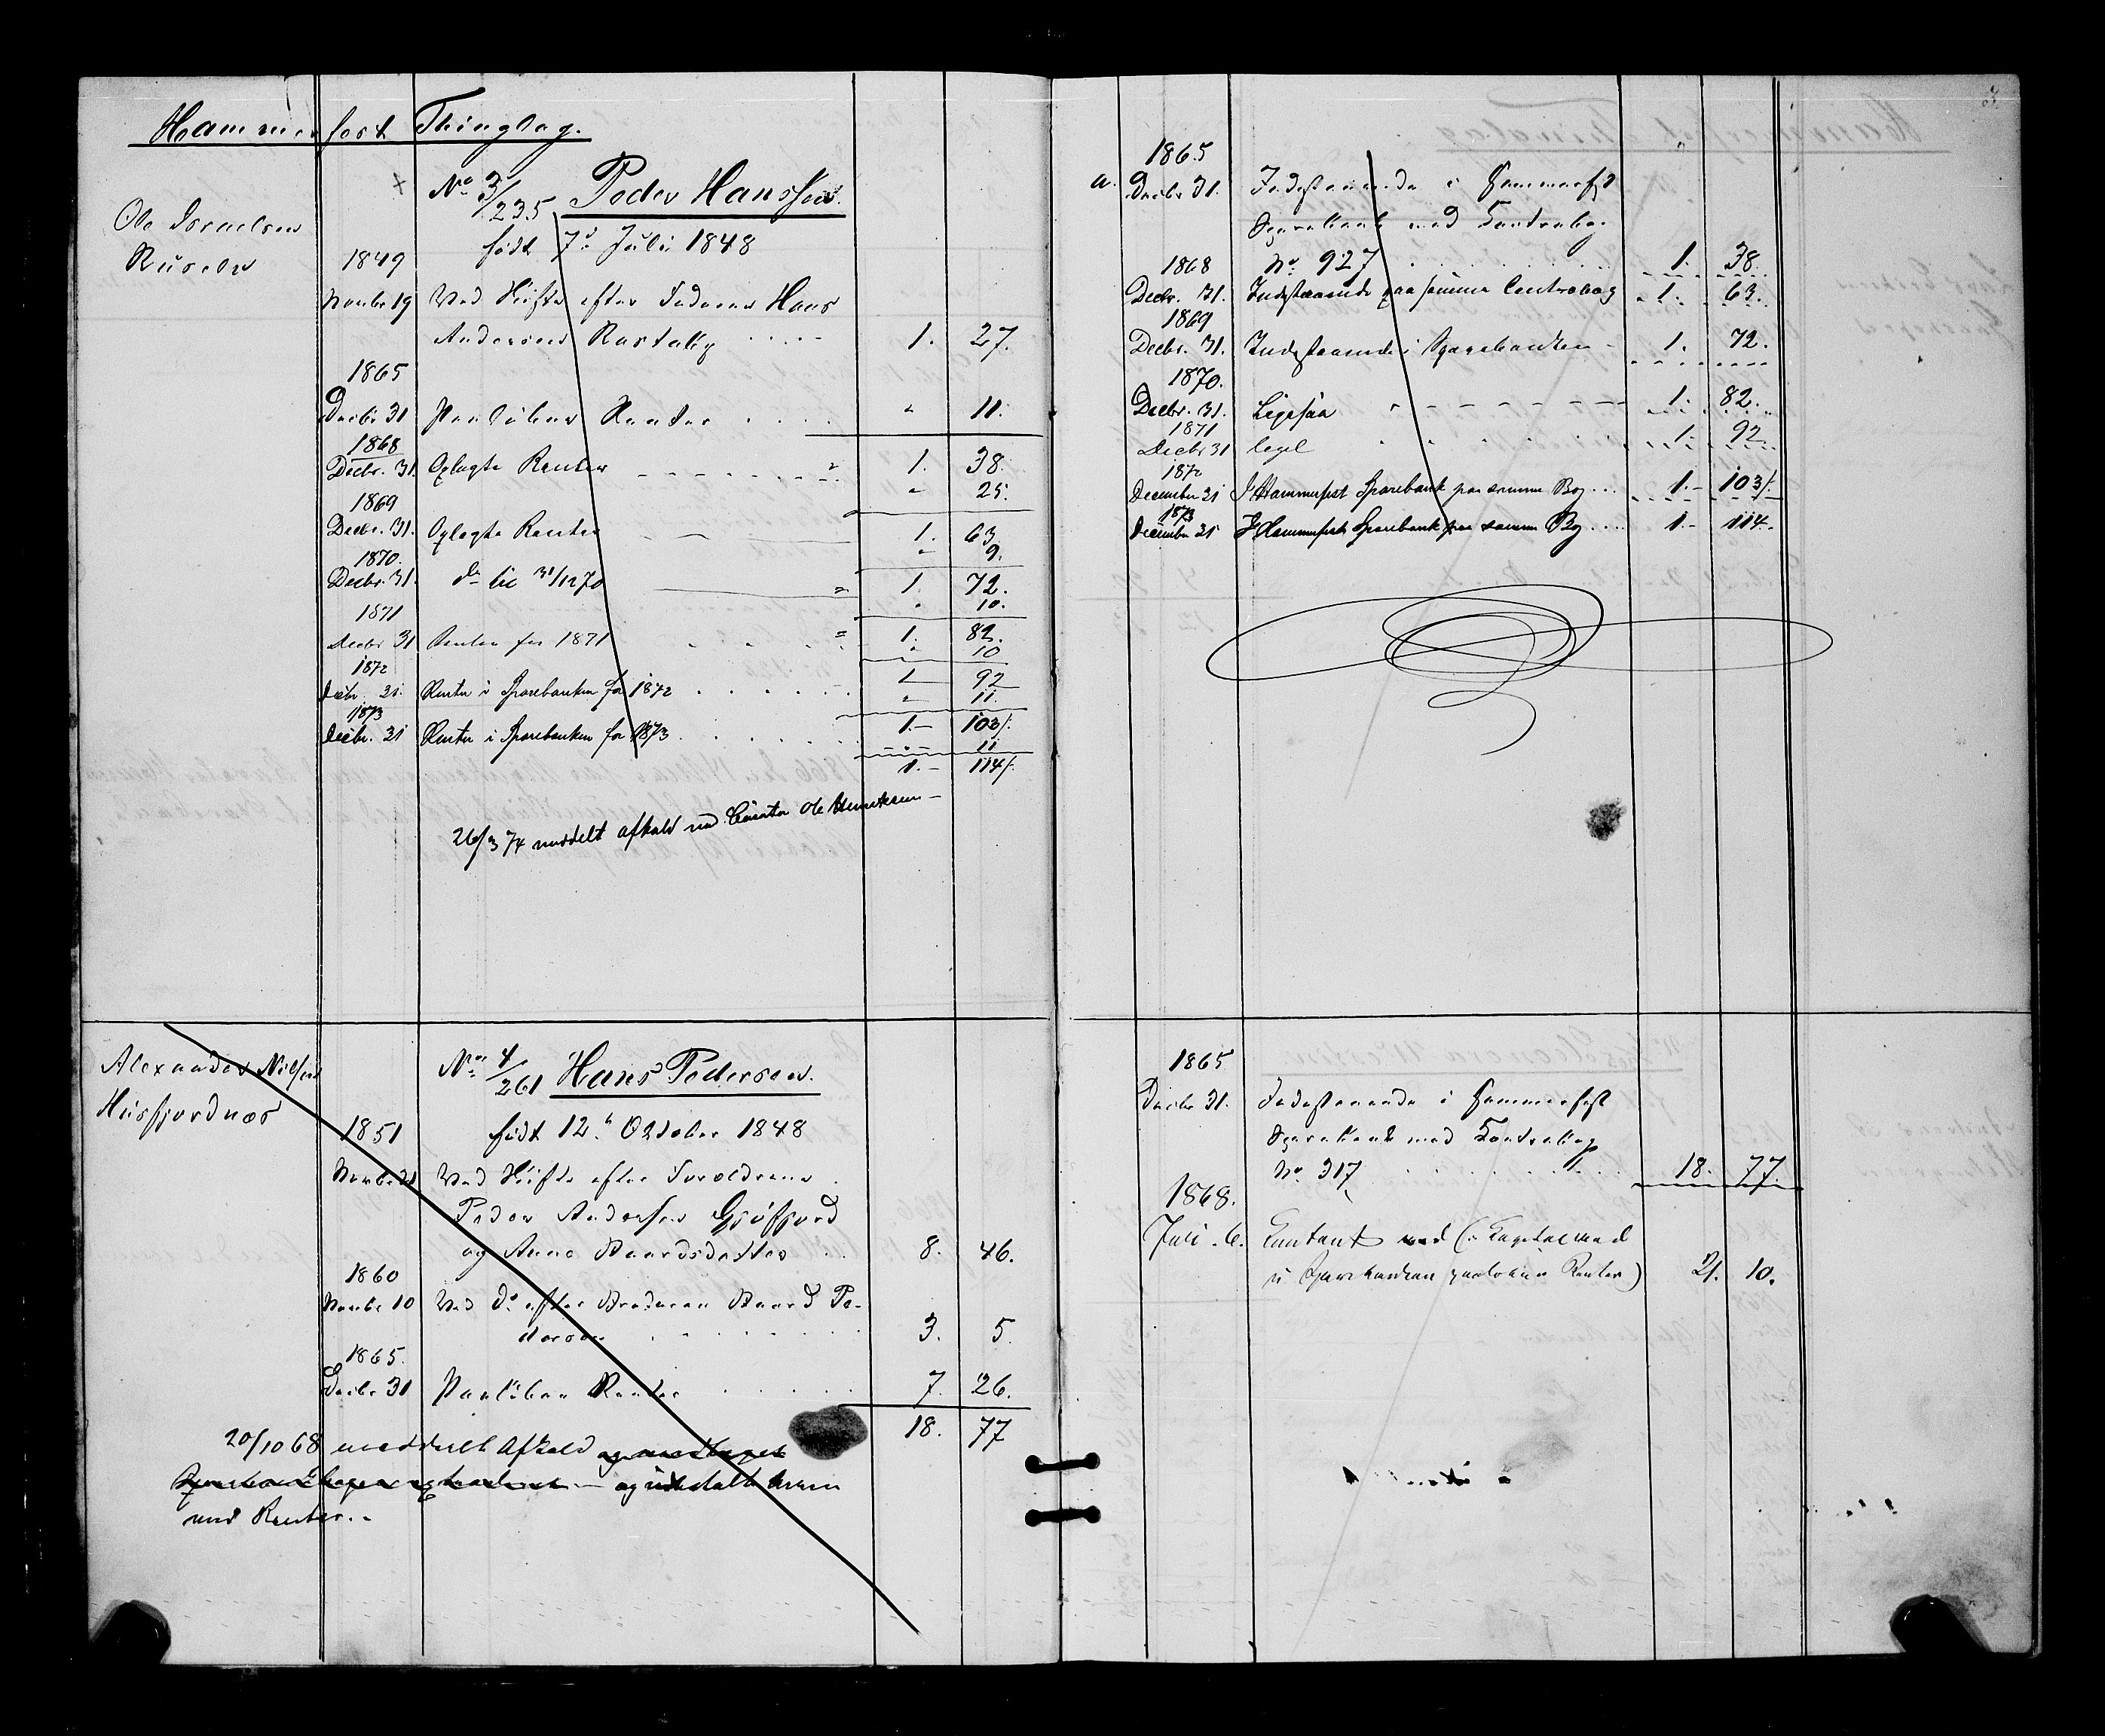 Hammerfest Thinglag.
Ole Israelsen
No 3/235 Peder Hanssen.
født 7de Juli 1848
1849
Novbr 19 Ved Skifte efter Faderen Hans
Andersen 1. 27.
1865
Decbr 31 Paaløbne Renter " 11.
1868 1. 38.
Decbr. 31. Oplagte Renter " 25.
1869 1. 63.
Decbr. 31. Oplagte Renter " 9.
1870. 1. 72.
Decbr. 31. do til 31/12 70 " 10.
1871 1. 82.
Decbr 31 Renter for 1871 " 10
1872 1. 92
Decbr. 31. Renter i Sparebanken for 1872 " 11.
1873 1.- 103/.
Decbr. 31 Renter i Sparebanken for 1873 11
1.- 114/.
26/3 74 meddelt afkald med Curator Ole
Alexander Nilsen
Husfjordnæs
No 4/261 Hans Pedersen.
født 12te October 1848
1851
Novbr 21 Ved Skifte efter Forældrene
Peder Andersen
og Anne Baardsdatter 8. 46.
1860
Novbr 10 Ved do efter Broderen Baard Pe-
dersen 3. 5.
1865.
Decbr 31 Paaløbne Renter 7. 26.
18. 77
20/10 68 meddeelt Afkald og modtaget
og udbetalt
med Renter.-
3.
1865
a. Decbr 31. Indestaaende i Hammerfest
Sparebank med Contrabog
No 927 1. 38.
1868
Decbr. 31. Indestaaende paa samme Contrabog 1. 63.
1869
Decbr. 31. Indestaaende i Sparebanken 1. 72.
1870.
Decbr. 31. Ligesaa 1. 82.
1871
Decbr 31 1. 92
1872
December 31 I Hammerfest Sparebank paa samme Bog 1.- 103/.
1873
December 31 I Hammerfest Sparebank paa samme Bog 1.- 114.
1865
Decbr 31. Indestaaende i Hammerfest
Sparebank med Contrabog
No 317 18. 77.
1868.
Juli 6. Contant med (: Capital med
i Sparebanken paaløbne Renter) 21. 10.